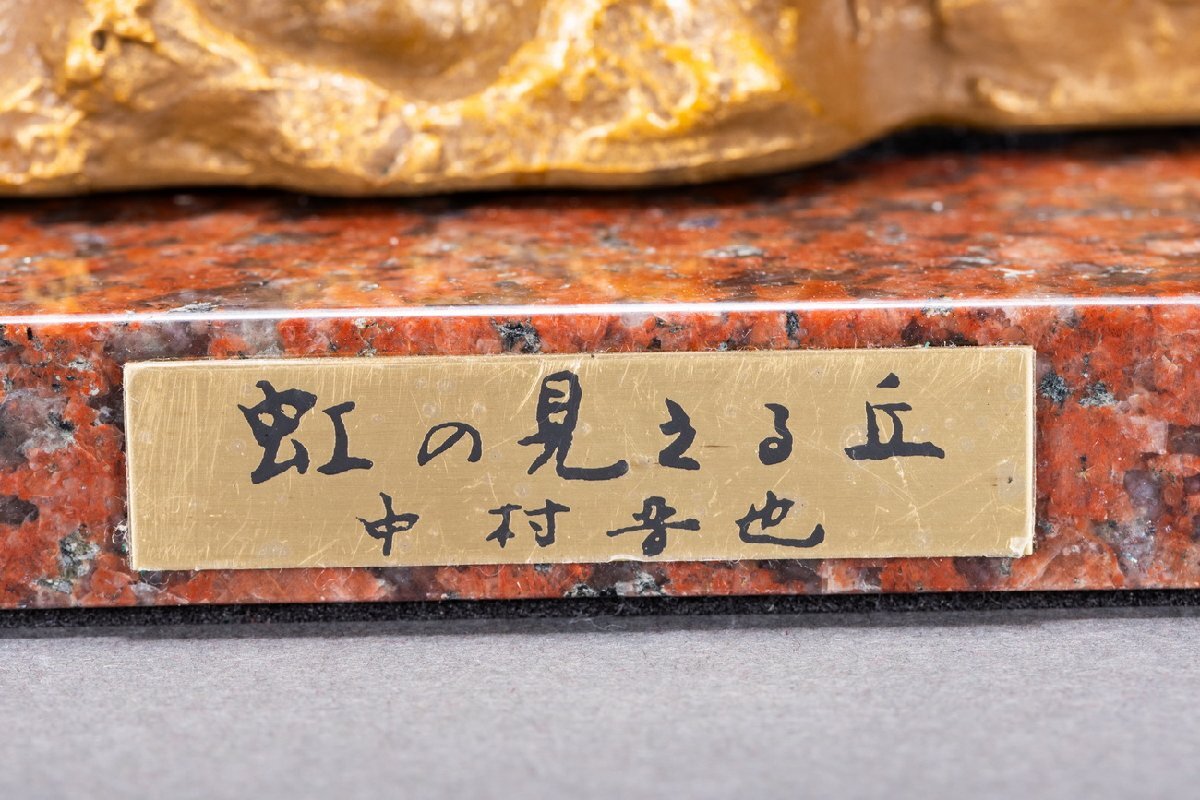 虹の見える丘
中村晋也